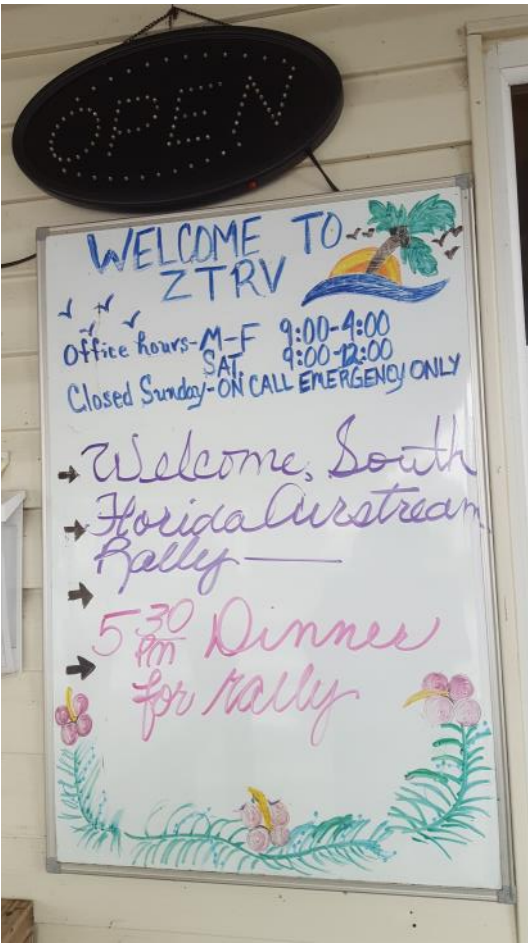 OPEN
WELCOME TO
ZTRV
Office hours-M-F 9:00-4:00
SAT. 9:00-12:00
Closed Sunday-ON CALL EMERGENCY ONLY
Welcome, South
Florida Airstream
Rally
5 30 PM Dinner
for rally